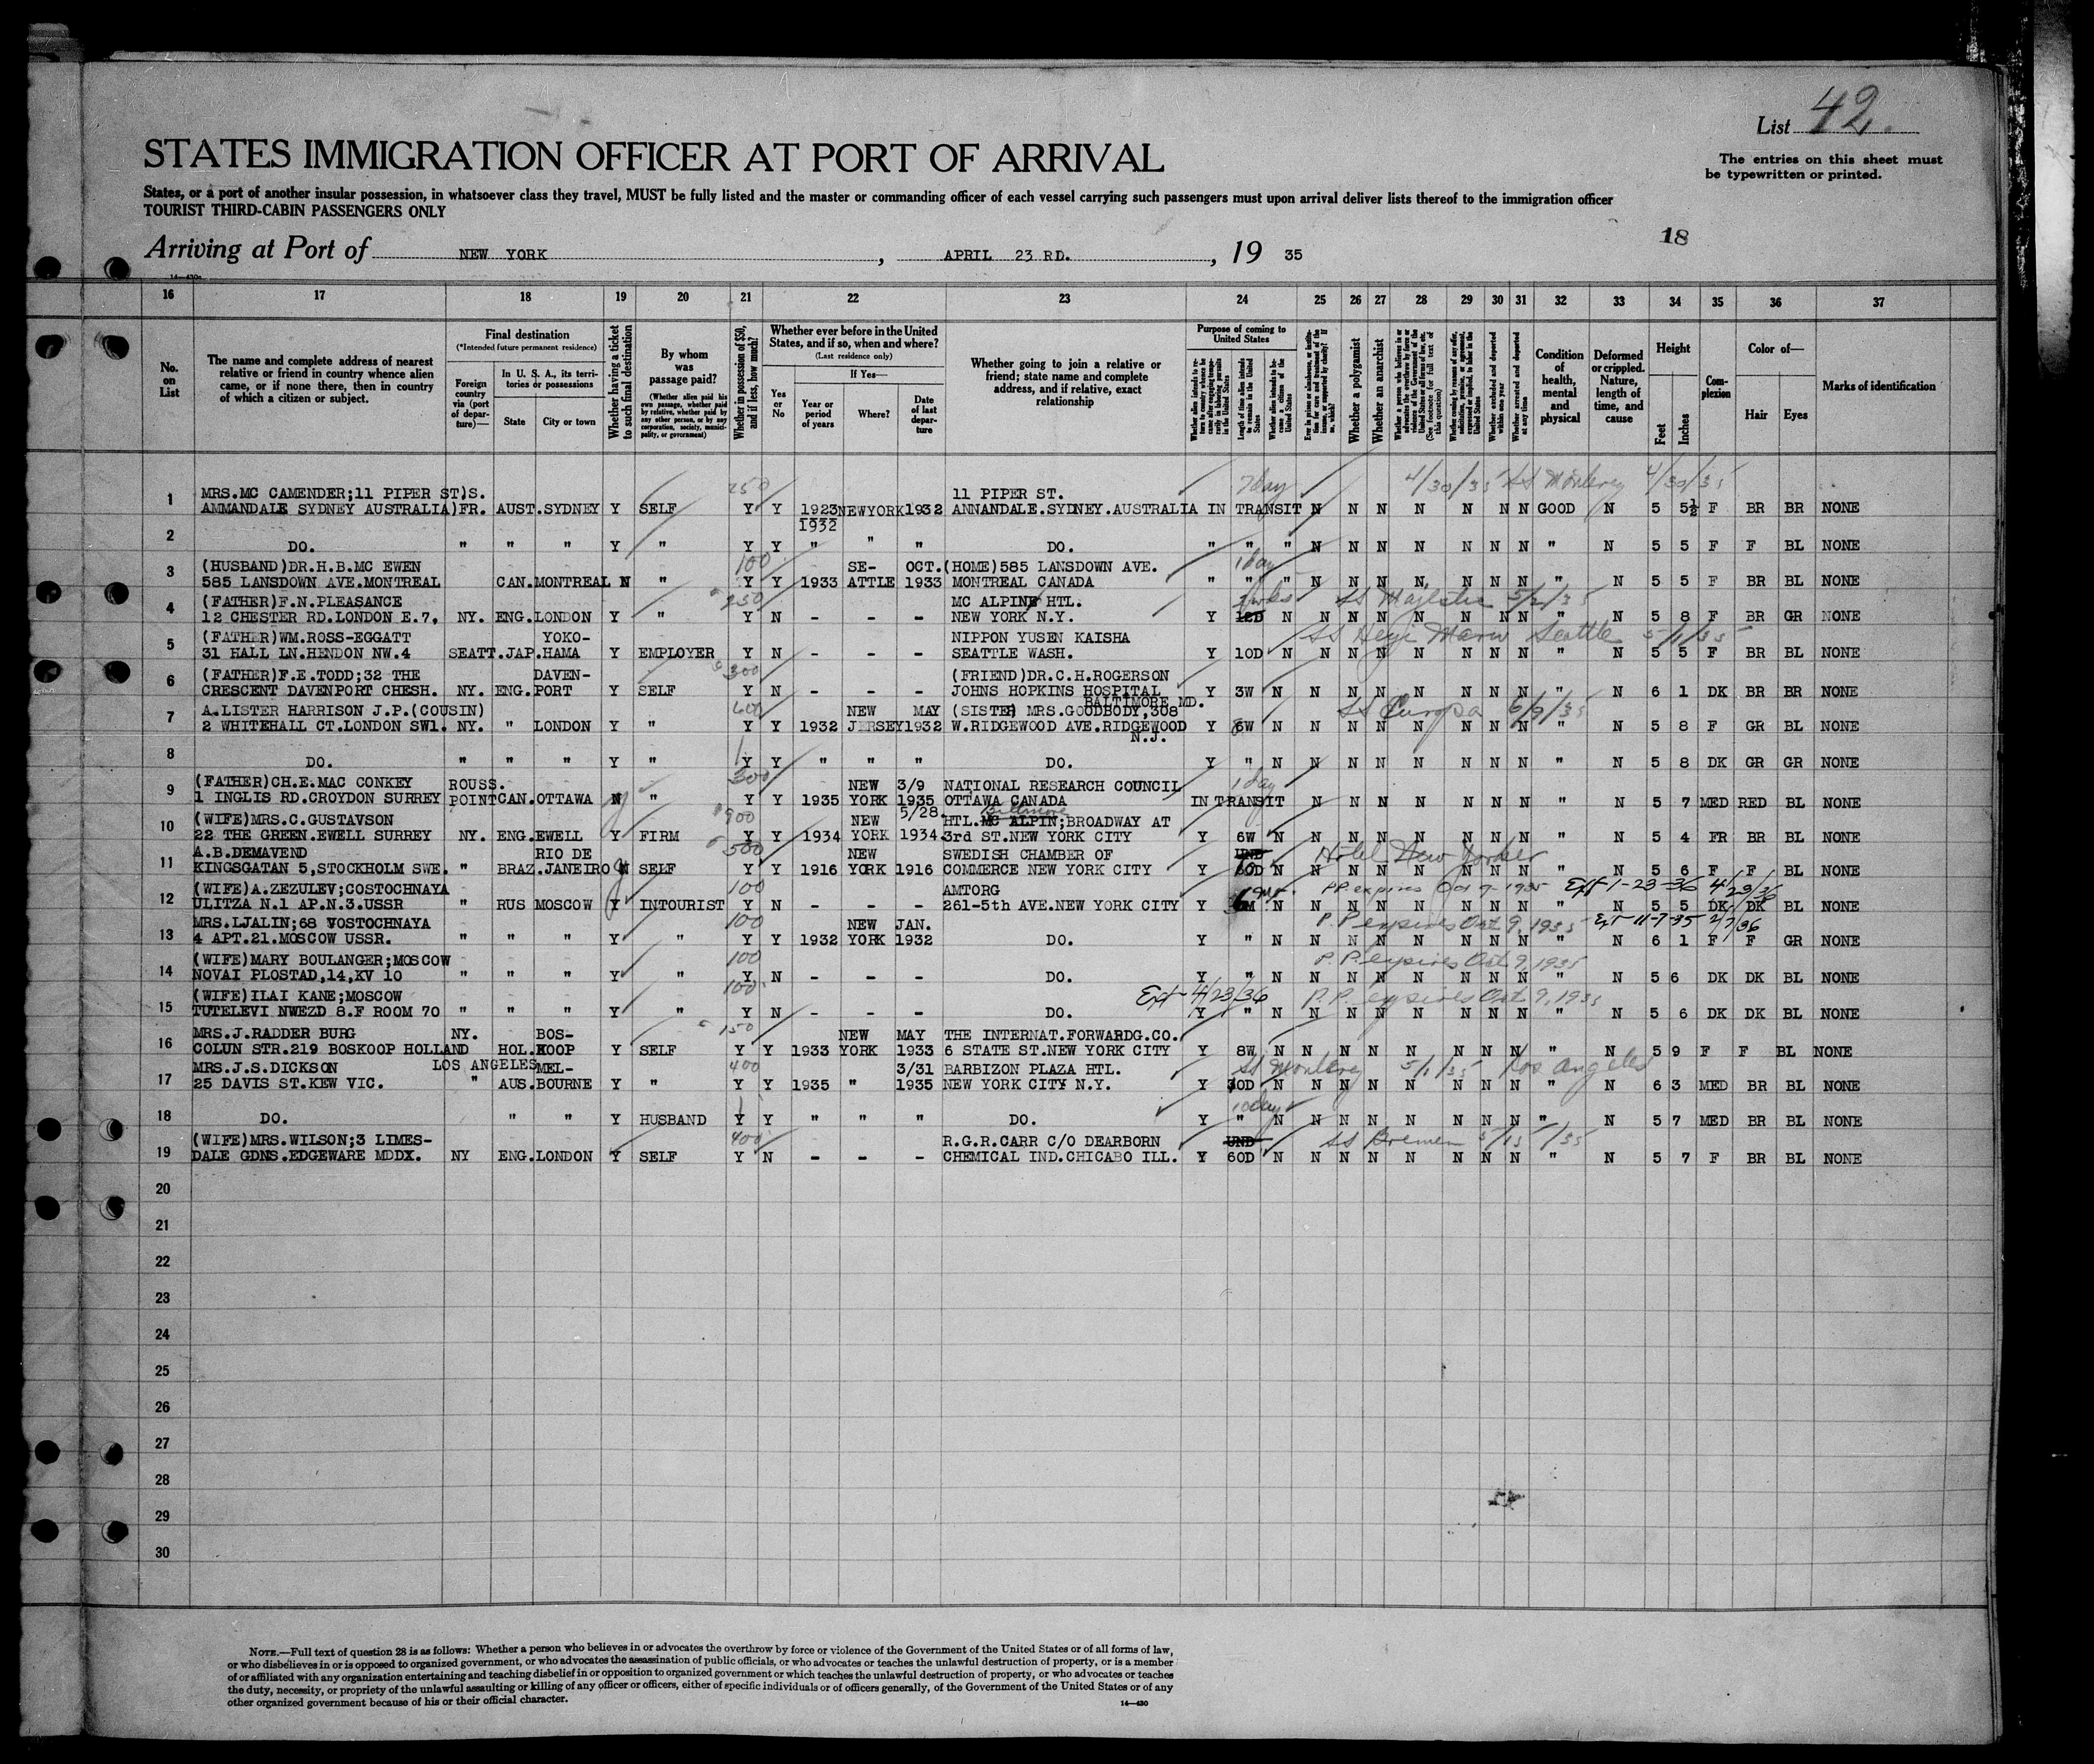 List 42.
STATES IMMIGRATION OFFICER AT PORT OF ARRIVAL
The entries on this sheet must
be typewritten or printed.
States, or a port of another insular possession, in whatsoever class they travel, MUST be fully listed and the master or commanding officer of each vessel carrying such passengers must upon arrival deliver lists thereof to the immigration officer
TOURIST THIRD-CABIN PASSENGERS ONLY
18
Arriving at Port of NEW YORK, APRIL 23 RD., 19 35
14—430a
16 17 18 19 20 21 22 23 24 25 26 27 28 29 30 31 32 33 34 35 36 37
No. on List
The name and complete address of nearest relative or friend in country whence alien came, or if none there, then in country of which a citizen or subject.
Final destination
(*Intended future permanent residence)
Foreign country via (port of departure)—
In U. S. A., its territories or possessions
State City or town
Whether having a ticket to such final destination
By whom was passage paid?
(Whether alien paid his own passage, whether paid by relative, whether paid by any other person, or by any corporation, society, municipality, or government)
Whether in possession of $50, and if less, how much?
Whether ever before in the United States, and if so, when and where?
(Last residence only)
Yes or No
If Yes—
Year or period of years
Where?
Date of last departure
Whether going to join a relative or friend; state name and complete address, and if relative, exact relationship
Purpose of coming to United States
Length of time alien intends to remain in the United States
Whether alien intends to become a citizen of the United States
Whether a polygamist
Whether an anarchist
Whether excluded and deported within one year
Whether arrested and deported at any time
Condition of health, mental and physical
Deformed or crippled. Nature, length of time, and cause
Height
Feet Inches
Complexion
Color of—
Hair Eyes
Marks of identification
250 7 day 4/30/35 SS Monterey 4/30/35
1 MRS.MC CAMENDER;11 PIPER ST)S. 11 PIPER ST.
AMMANDALE SYDNEY AUSTRALIA)FR. AUST.SYDNEY Y SELF Y Y 1923 NEWYORK 1932 ANNANDALE.SYDNEY.AUSTRALIA IN TRANSIT N N N N N N N GOOD N 5 5½ F BR BR NONE
1932
2 DO. " " " Y " Y Y " " " DO. " " " N N N N N N N " N 5 5 F F BL NONE
100 1 day
3 (HUSBAND)DR.H.B.MC EWEN SE- OCT. (HOME)585 LANSDOWN AVE.
585 LANSDOWN AVE.MONTREAL CAN.MONTREAL N " Y Y 1933 ATTLE 1933 MONTREAL CANADA " " " N N N N N N N " N 5 5 F BR BL NONE
250 2 wks SS Majestic 5/2/35
4 (FATHER)F.N.PLEASANCE MC ALPINE HTL.
12 CHESTER RD.LONDON E.7, NY. ENG.LONDON Y " Y N - - - NEW YORK N.Y. Y 12D N N N N N N N N " N 5 8 F BR GR NONE
SS Heye Maru Seattle 5/1/35
5 (FATHER)WM.ROSS-EGGATT YOKO- NIPPON YUSEN KAISHA
31 HALL LN.HENDON NW.4 SEATT.JAP.HAMA Y EMPLOYER Y N - - - SEATTLE WASH. Y 10D N N N N N N N N " N 5 5 F BR BL NONE
300
6 (FATHER)F.E.TODD;32 THE DAVEN- (FRIEND)DR.C.H.ROGERSON
CRESCENT DAVENPORT CHESH. NY. ENG.PORT Y SELF Y N - - - JOHNS HOPKINS HOSPITAL Y 3W N N N N N N N N " N 6 1 DK BR BR NONE
BALTIMORE MD.
600 SS Europa 6/9/35
7 A.LISTER HARRISON J.P.(COUSIN) NEW MAY (SISTER) MRS.GOODBODY,308
2 WHITEHALL CT.LONDON SW1. NY. " LONDON Y " Y Y 1932 JERSEY 1932 W.RIDGEWOOD AVE.RIDGEWOOD Y 6W N N N N N N N N " N 5 8 F GR BL NONE
N.J.
8 DO. " " " Y " Y Y " " " DO. Y " N N N N N N N N " N 5 8 DK GR GR NONE
300 1 day
9 (FATHER)CH.E.MAC CONKEY ROUSS. NEW 3/9 NATIONAL RESEARCH COUNCIL
1 INGLIS RD.CROYDON SURREY POINT CAN.OTTAWA N " Y Y 1935 YORK 1935 OTTAWA CANADA IN TRANSIT N N N N N N N " N 5 7 MED RED BL NONE
900
10 (WIFE)MRS.C.GUSTAVSON NEW 5/28. HTL.MC ALPIN;BROADWAY AT
22 THE GREEN.EWELL SURREY NY. ENG.EWELL Y FIRM Y Y 1934 YORK 1934. 3rd ST.NEW YORK CITY Y 6W N N N N N N N N " N 5 4 FR BR BL NONE
500 UND Hotel New Yorker
11 A.B.DEMAVEND RIO DE NEW SWEDISH CHAMBER OF
KINGSGATAN 5,STOCKHOLM SWE. " BRAZ.JANEIRO N SELF Y Y 1916 YORK 1916 COMMERCE NEW YORK CITY Y 60D N N N N N N N N " N 5 6 F F BL NONE
100 P.P. expires Oct 9-1935 Ext 1-23-36 4/23/36
12 (WIFE)A.ZEZULEV;COSTOCHNAYA AMTORG
ULITZA N.1 AP.N.3.USSR " RUS MOSCOW Y INTOURIST Y N - - - 261-5th AVE.NEW YORK CITY Y 6M N N N N N N N N " N 5 5 DK DK BL NONE
100 P.P. expires Oct 9, 1935 Ext 11-7-35 2/7/36
13 MRS.LJALIN;68 VOSTOCHNAYA NEW JAN.
4 APT.21.MOSCOW USSR. " " " Y " Y Y 1932 YORK 1932 DO. Y " N N N N N N N N " N 6 1 F F GR NONE
100 P.P. expires Oct 9, 1935
14 (WIFE)MARY BOULANGER;MOSCOW
NOVAI PLOSTAD,14,KV 10 " " " Y " Y N - - - DO. Y " N N N N N N N N " N 5 6 DK DK BL NONE
100 Ext-4/23/36 P.P. expires Oct 9, 1935
15 (WIFE)ILAI KANE;MOSCOW
TUTELEVI NWEZD 8.F ROOM 70 " " " Y " Y N - - - DO. Y " N N N N N N N N " N 5 6 DK DK BL NONE
150
16 MRS.J.RADDER BURG NY. BOS- NEW MAY THE INTERNAT.FORWARDG.CO.
COLUN STR.219 BOSKOOP HOLLAND HOL.KOOP Y SELF Y Y 1933 YORK 1933 6 STATE ST.NEW YORK CITY Y 8W N N N N N N N N " N 5 9 F F BL NONE
400 SS Monterey 5/1/35 Los Angeles
17 MRS.J.S.DICKSON LOS ANGELES MEL- 3/31 BARBIZON PLAZA HTL.
25 DAVIS ST.KEW VIC. " AUS.BOURNE Y " Y Y 1935 " 1935 NEW YORK CITY N.Y. Y 30D N N N N N N N N " N 6 3 MED BR BL NONE
10 days
18 DO. " " Y HUSBAND Y Y " " " DO. Y " N N N N N N N N " N 5 7 MED BR BL NONE
400 UND SS Bremen 5/15/35
19 (WIFE)MRS.WILSON;3 LIMES- R.G.R.CARR C/O DEARBORN
DALE GDNS.EDGEWARE MDDX. NY ENG.LONDON Y SELF Y N - - - CHEMICAL IND.CHICABO ILL. Y 60D N N N N N N N N " N 5 7 F BR BL NONE
20
21
22
23
24
25
26
27
28
29
30
NOTE.—Full text of question 28 is as follows: Whether a person who believes in or advocates the overthrow by force or violence of the Government of the United States or of all forms of law,
or who disbelieves in or is opposed to organized government, or who advocates the assassination of public officials, or who advocates or teaches the unlawful destruction of property, or is a member
of or affiliated with any organization entertaining and teaching disbelief in or opposition to organized government or which teaches the unlawful destruction of property, or who advocates or teaches
the duty, necessity, or propriety of the unlawful assaulting or killing of any officer or officers, either of specific individuals or of officers generally, of the Government of the United States or of any
other organized government because of his or their official character.
14—430